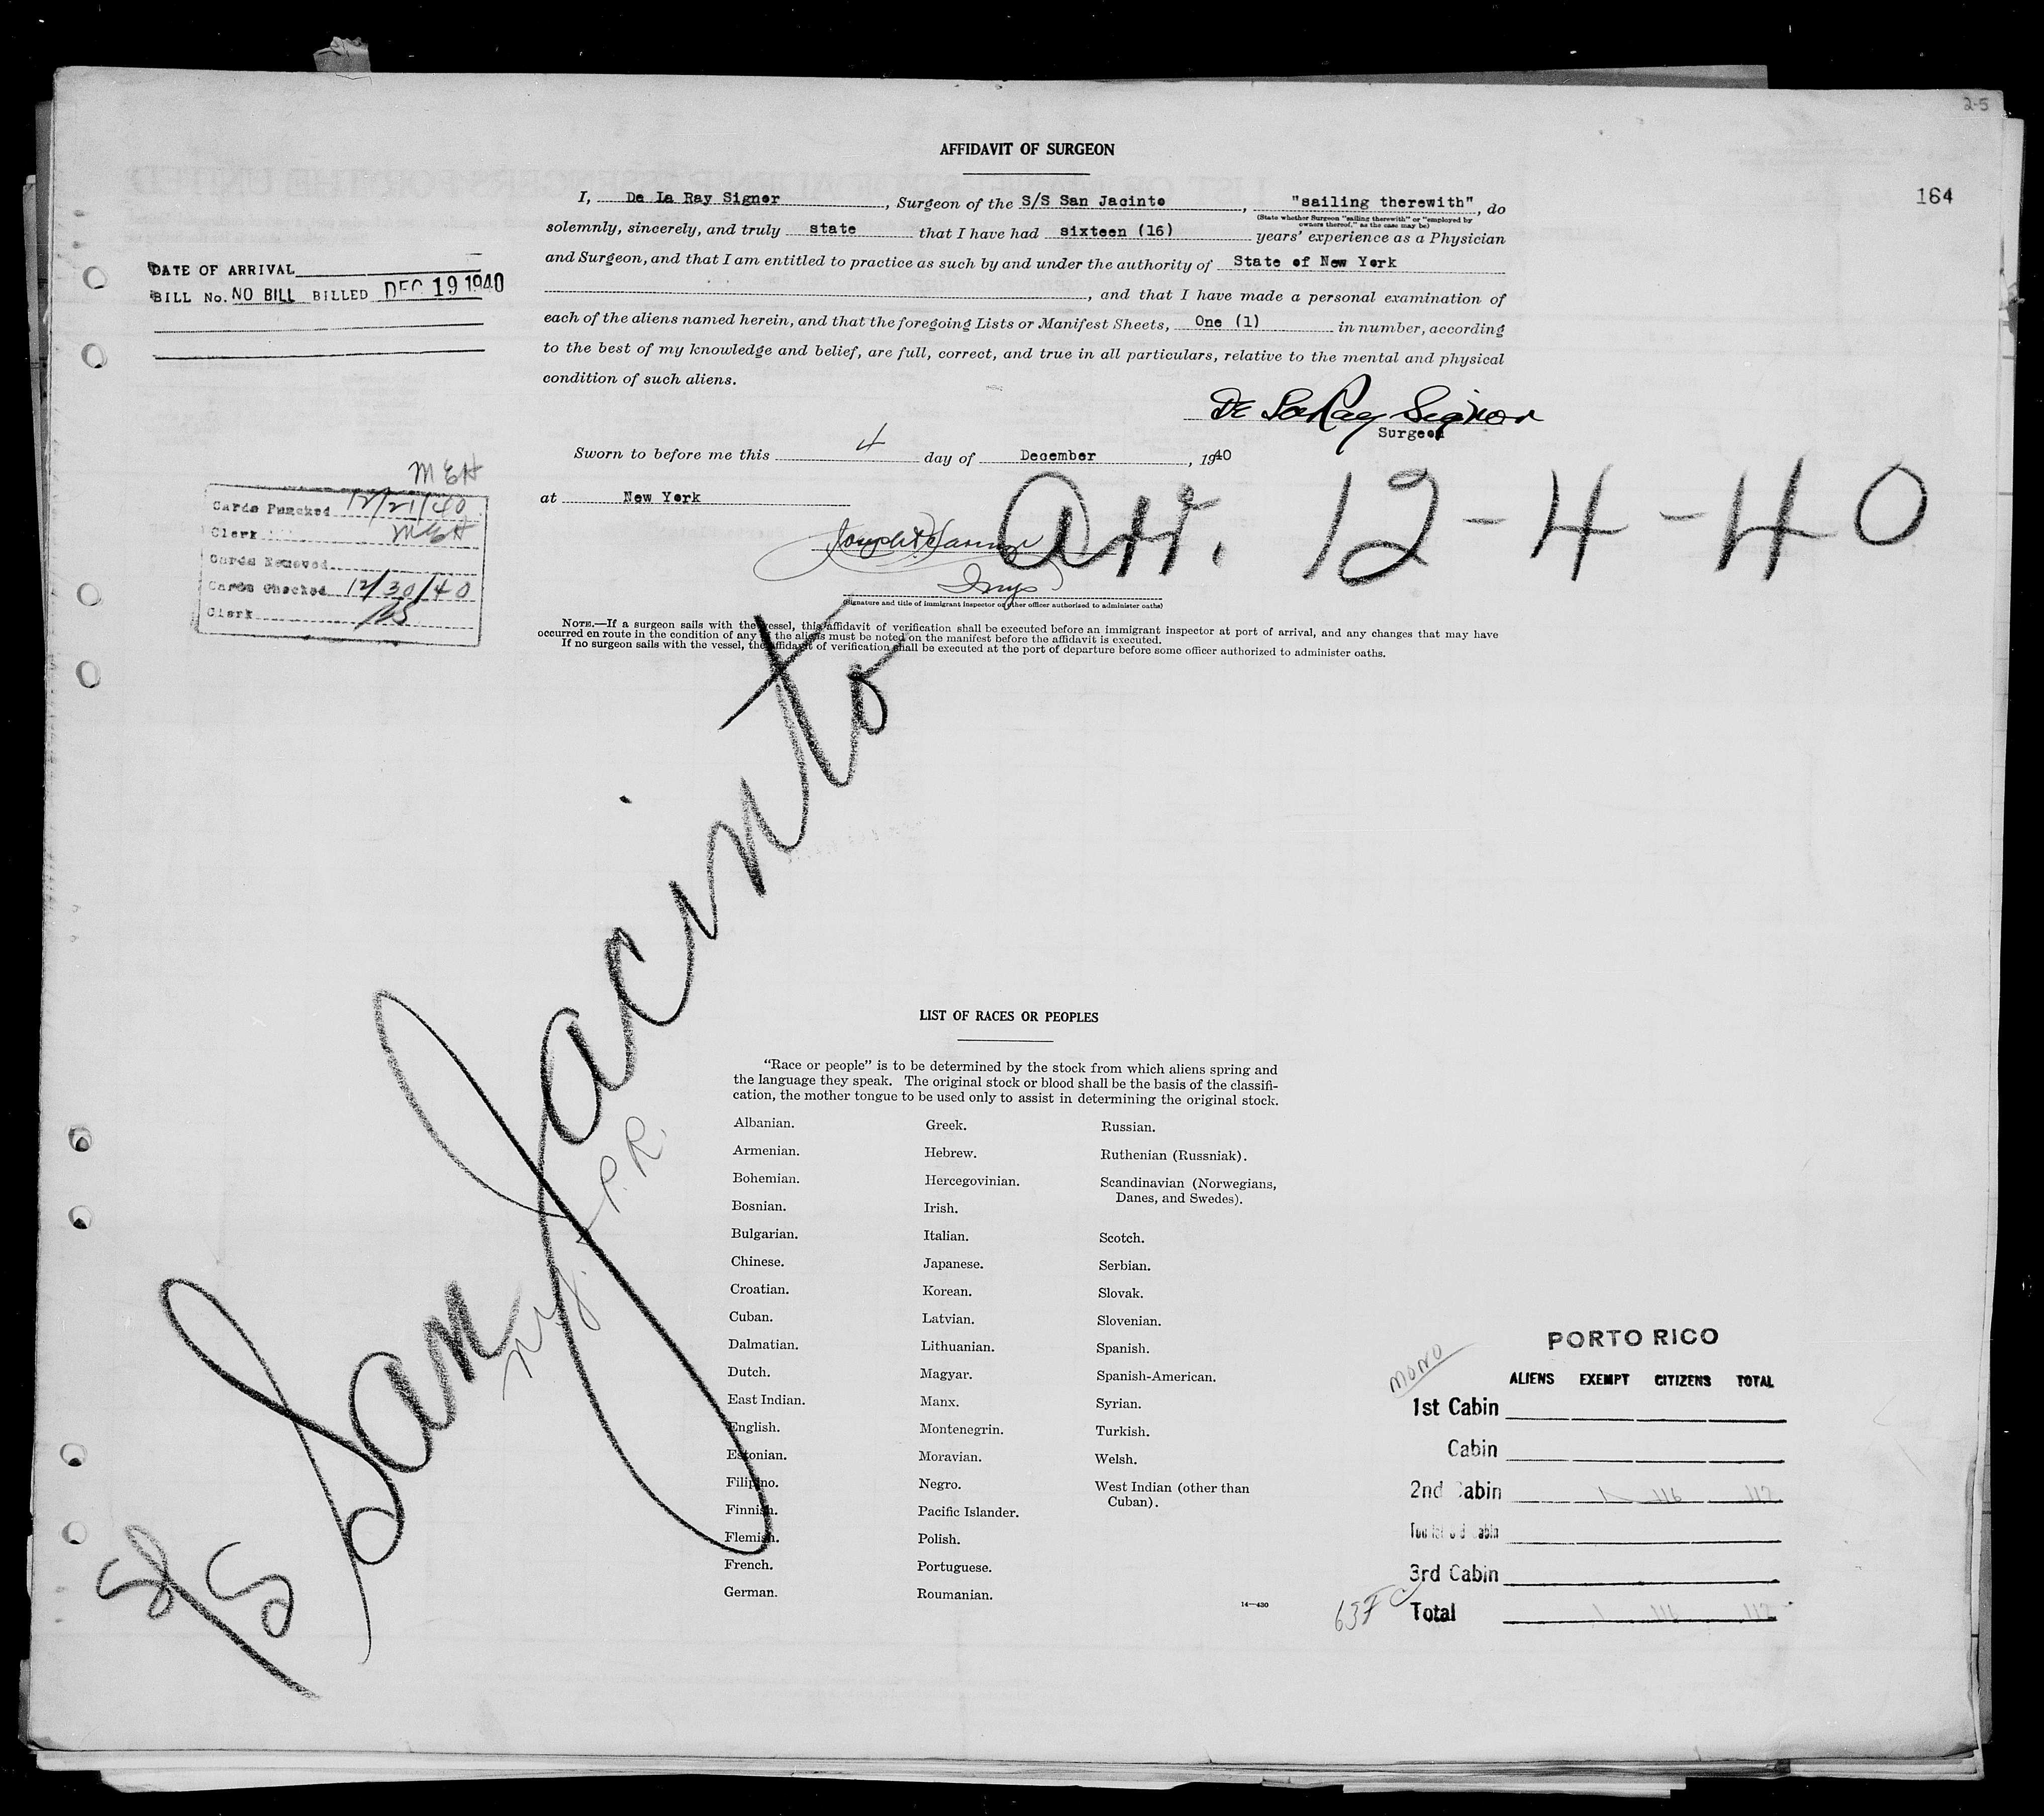 2-5
164
AFFIDAVIT OF SURGEON
I, De La Ray Signor, Surgeon of the S/S San Jacinto, "sailing therewith", do
(State whether Surgeon "sailing therewith" or "employed by owners thereof," as the case may be)
solemnly, sincerely, and truly state that I have had sixteen (16) years' experience as a Physician
and Surgeon, and that I am entitled to practice as such by and under the authority of State of New York
, and that I have made a personal examination of
each of the aliens named herein, and that the foregoing Lists or Manifest Sheets, One (1) in number, according
to the best of my knowledge and belief, are full, correct, and true in all particulars, relative to the mental and physical
condition of such aliens.
DATE OF ARRIVAL
BILL No. NO BILL BILLED DEC 19 1940
De La Ray Signor
Surgeon
Sworn to before me this 4 day of December, 1940
at New York
Arr. 12-4-40
Insp
(Signature and title of immigrant inspector or other officer authorized to administer oaths)
MEH
Cards Punched 12/21/40
Clerk MEH
Cards Removed
Cards Checked 12/30/40
Clerk
NOTE.—If a surgeon sails with the vessel, this affidavit of verification shall be executed before an immigrant inspector at port of arrival, and any changes that may have
occurred en route in the condition of any of the aliens must be noted on the manifest before the affidavit is executed.
If no surgeon sails with the vessel, the affidavit of verification shall be executed at the port of departure before some officer authorized to administer oaths.
S/S San Jacinto
N.Y. - P.R.
LIST OF RACES OR PEOPLES
"Race or people" is to be determined by the stock from which aliens spring and
the language they speak. The original stock or blood shall be the basis of the classifi-
cation, the mother tongue to be used only to assist in determining the original stock.
Albanian.
Armenian.
Bohemian.
Bosnian.
Bulgarian.
Chinese.
Croatian.
Cuban.
Dalmatian.
Dutch.
East Indian.
English.
Estonian.
Filipino.
Finnish.
Flemish.
French.
German.
Greek.
Hebrew.
Hercegovinian.
Irish.
Italian.
Japanese.
Korean.
Latvian.
Lithuanian.
Magyar.
Manx.
Montenegrin.
Moravian.
Negro.
Pacific Islander.
Polish.
Portuguese.
Roumanian.
Russian.
Ruthenian (Russniak).
Scandinavian (Norwegians,
Danes, and Swedes).
Scotch.
Serbian.
Slovak.
Slovenian.
Spanish.
Spanish-American.
Syrian.
Turkish.
Welsh.
West Indian (other than
Cuban).
14—430
MONO
PORTO RICO
ALIENS EXEMPT CITIZENS TOTAL
1st Cabin
Cabin
2nd Cabin 1 116 117
3rd Cabin
Total 1 116 117